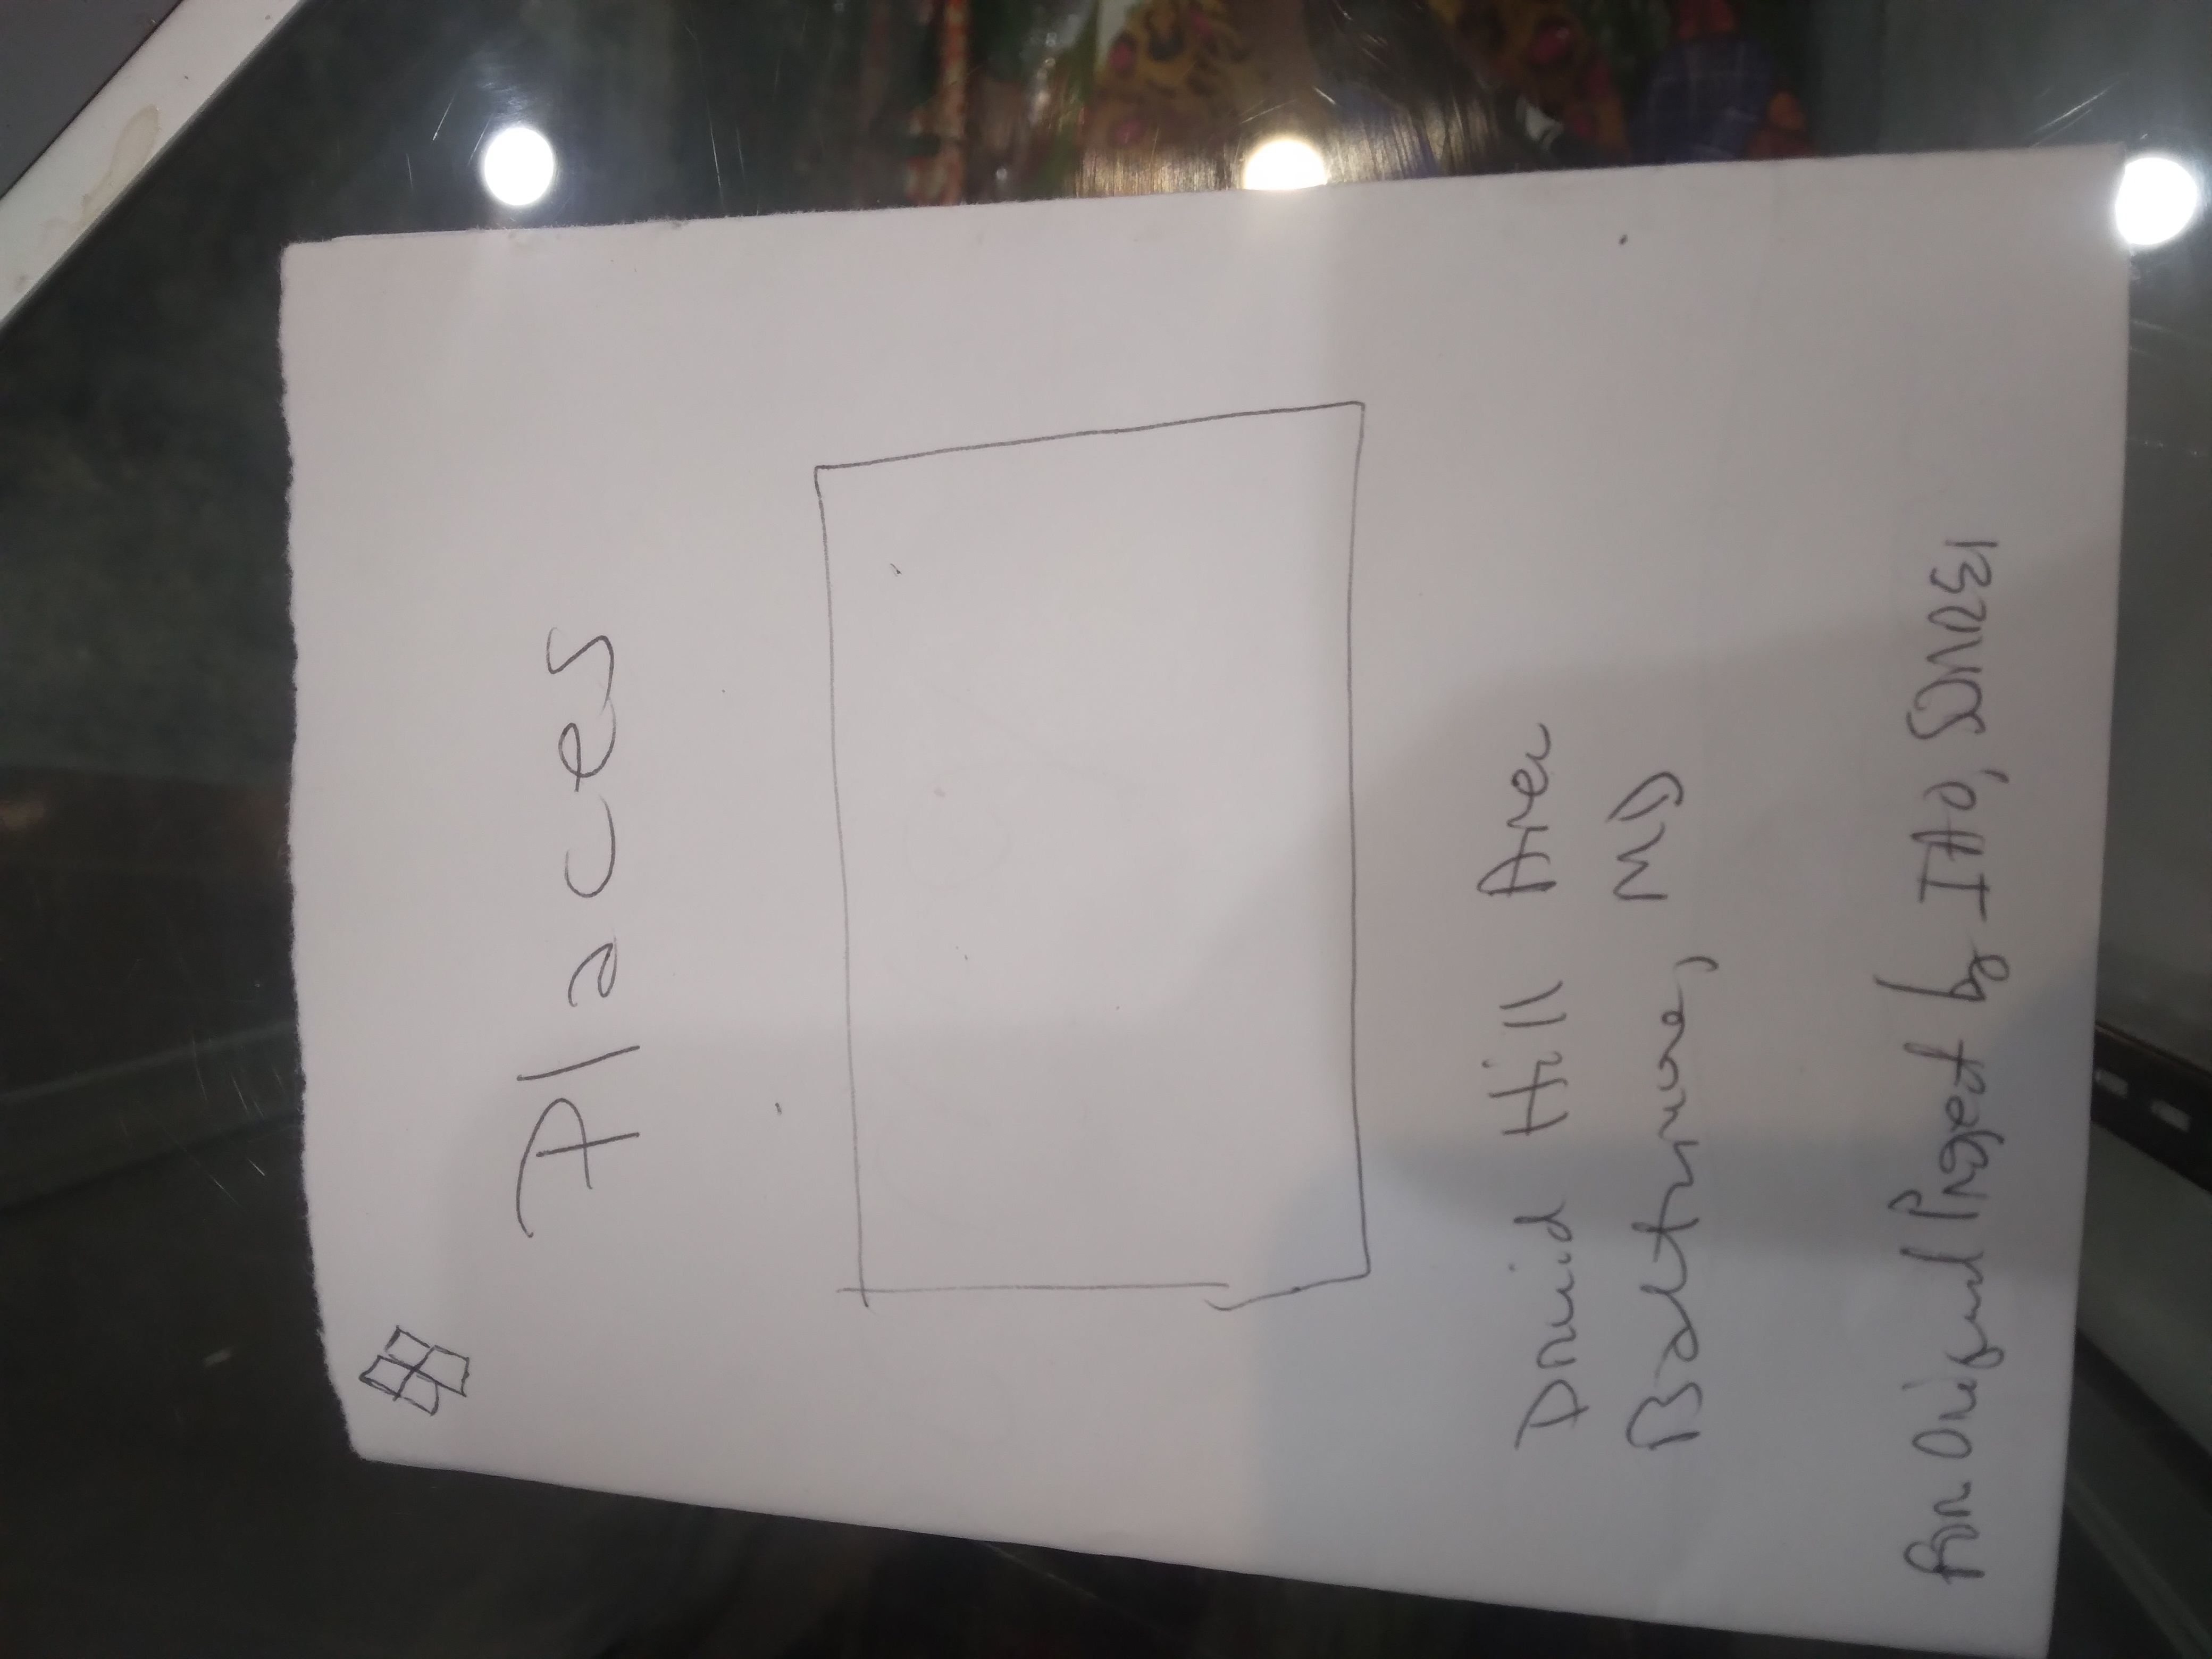 Places
Druid Hill Area
Baltimore, MD
For Original Project by IAO,